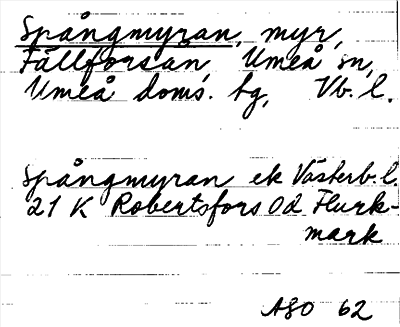 Spångmyran, myr,
Fällforsån Umeå sn,
Umeå doms. hg, Vb. l.
Spångmyran ek Västerb. l.
21 K Robertsfors 0d Flurk-
mark
ASO 62